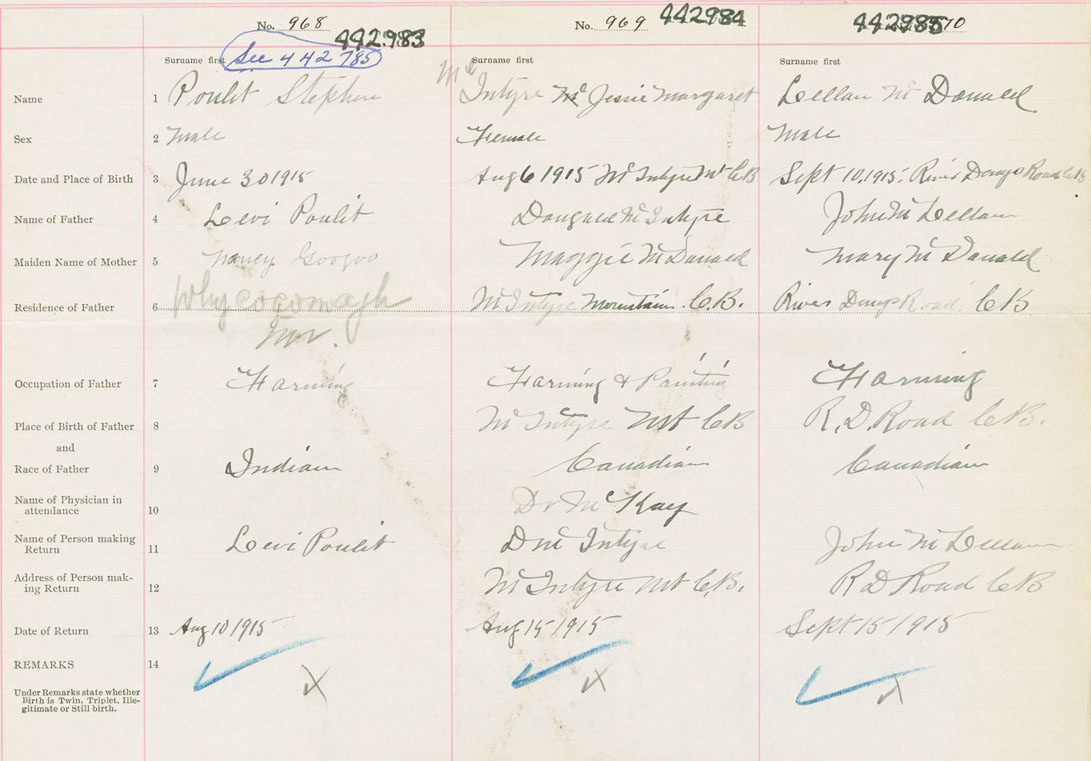 No. 968
442.983
No. 969
442984
442985
70
See 442785
Surname first
Surname first
Surname first
Name 1 Poulit Stephen
Mc Intyre Mc Jessie Margaret
Lellan Mc Donald
Sex 2 Male
Female
Male
Date and Place of Birth 3 June 30 1915
Aug 6 1915 Mc Intyre Mt CB
Sept 10, 1915. River Denys Road CB
Name of Father 4 Levi Poulit
Dougald Mc Intyre
John Mc Lellan
Maiden Name of Mother 5 Nancy Googoo
Maggie McDonald
Mary Mc Donald
Residence of Father 6 Whycocomagh
Inv.
Mc Intyre Mountain. C.B.
River Denys Road CB
Occupation of Father 7 Farming
Farming & Painting
Farming
Place of Birth of Father 8
Mc Intyre Mt CB
R. D. Road CB.
and
Race of Father 9 Indian
Canadian
Canadian
Name of Physician in
attendance 10
Dr Mc Kay
Name of Person making
Return 11 Levi Poulit
D Mc Intyre
John Mc Lellan
Address of Person mak-
ing Return 12
Mc Intyre Mt C.B.
R D Road CB
Date of Return 13 Aug 10 1915
Aug 15 1915
Sept 15 1915
REMARKS 14
X
X
X
Under Remarks state whether
Birth is Twin, Triplet, Ille-
gitimate or Still-birth.